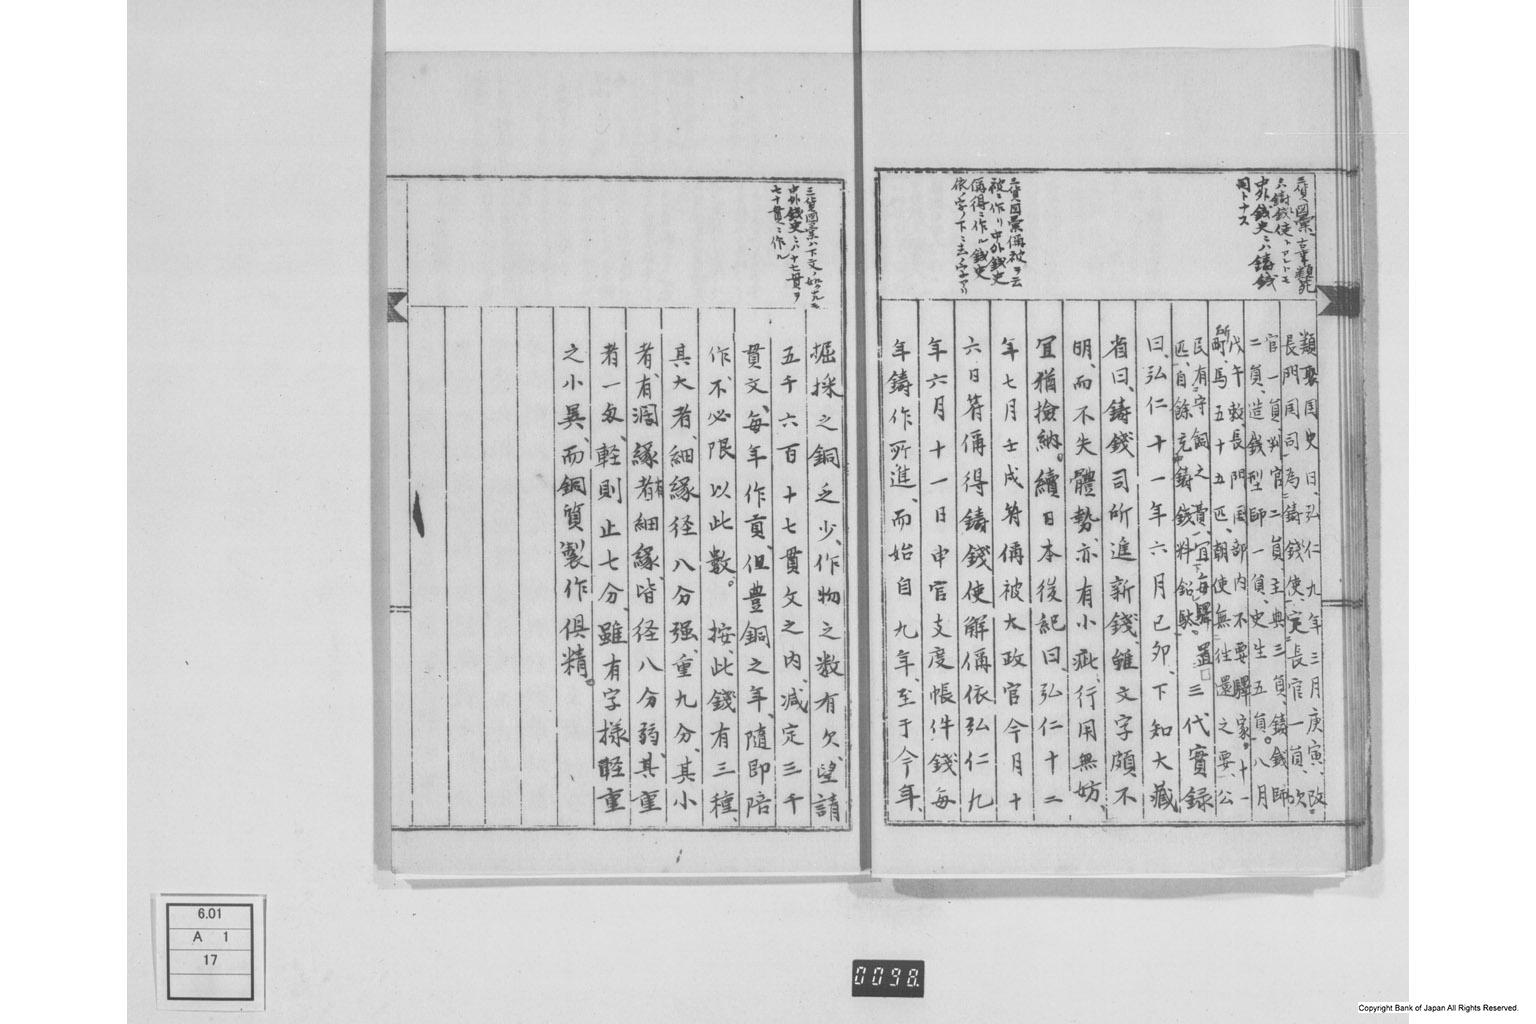 三貨図彙、古事類苑
ハ鋳銭使トアレトモ
中外銭史ニハ鋳銭
司トナス
類聚国史曰、弘仁九年三月庚寅、改
長門国司、為鋳銭使、定長官一員、次
官一員、判官二員、主典三員、鋳銭師
二員、造銭型師一員、史生五員。八月
戊午、敕、長門国部内不要驛家。十一
所町馬五十五匹、朝使無往還之要、公
民有守飼之費、宜毎驛置□
匹、自餘充鋳銭料鉛駄、三代實録
曰、弘仁十一年六月己卯、下知大藏
省曰、鋳錢司所進新錢、雖文字頗不
明、而不失體勢、亦有小疵、行用無妨、
宜猶撿納。續日本後紀曰、弘仁十二
年七月壬戌符偁被太政官今月十
六日符偁得鋳錢使解偁依弘仁九
年六月十一日申官支度帳件錢毎
年鋳作所進、而始自九年、至于今年、
三貨図彙偁被ヲ云
被ニ作リ中外銭史
偁得ニ作ル銭史
依ノ字ノ下ニ去ノ字アリ
三貨図彙ハ下文ノ如ク九モ
中外銭史ニハ十七貫ヲ
七十貫ニ作ル
堀採之銅乏少、作物之数有欠、望請
五千六百十七貫文之内、减定三千
貫文、毎年作貢、但豊銅之年、隨即陪
作、不必限以此數。按、此錢有三種、
其大者、細縁径八分强、重九分、其小
者、有濶縁者有細縁、皆径八分弱、其重
者一匁、軽則止七分、雖有字樣軽重
之小異、而銅質製作俱精。
6.01
A 1
17
0098.
Copyright Bank of Japan All Rights Reserved.